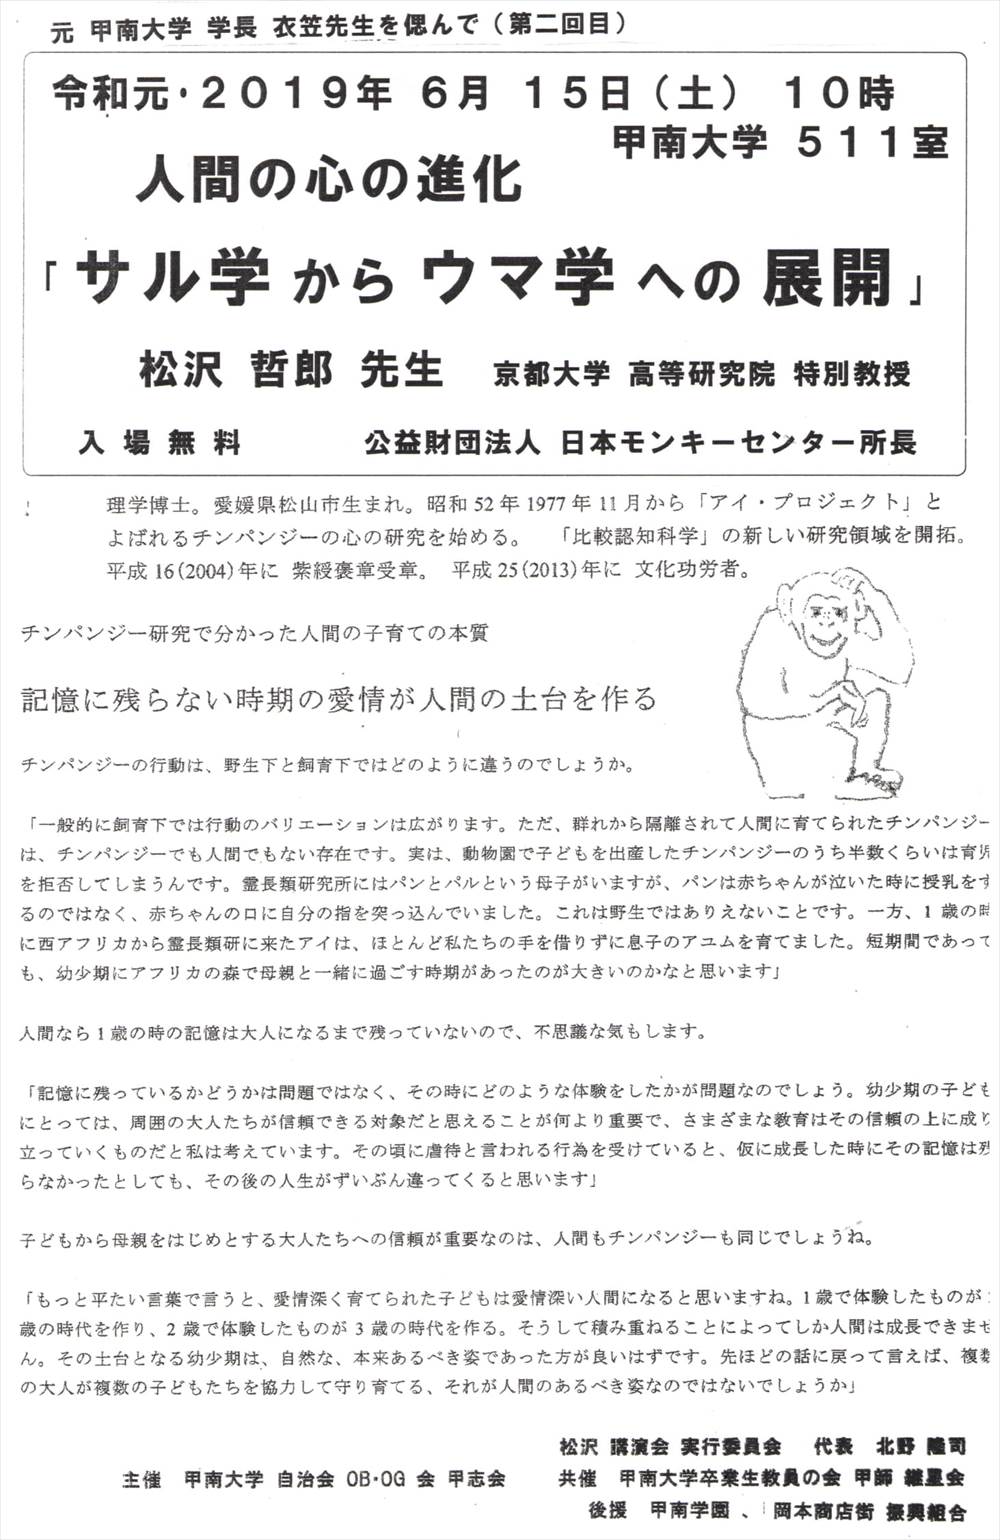 元 甲南大学 学長 衣笠先生を偲んで（第二回目）
令和元・２０１９年 ６月 １５日（土） １０時
甲南大学 ５１１室
人間の心の進化
「サル学 から ウマ学 への 展開」
松沢 哲郎 先生 京都大学 高等研究院 特別教授
入 場 無 料 公益財団法人 日本モンキーセンター所長
理学博士。愛媛県松山市生まれ。昭和 52 年 1977 年 11 月から「アイ・プロジェクト」と
よばれるチンパンジーの心の研究を始める。 「比較認知科学」の新しい研究領域を開拓。
平成 16(2004)年に 紫綬褒章受章。 平成 25(2013)年に 文化功労者。
チンパンジー研究で分かった人間の子育ての本質
記憶に残らない時期の愛情が人間の土台を作る
チンパンジーの行動は、野生下と飼育下ではどのように違うのでしょうか。
「一般的に飼育下では行動のバリエーションは広がります。ただ、群れから隔離されて人間に育てられたチンパンジー
は、チンパンジーでも人間でもない存在です。実は、動物園で子どもを出産したチンパンジーのうち半数くらいは育児
を拒否してしまうんです。霊長類研究所にはパンとパルという母子がいますが、パンは赤ちゃんが泣いた時に授乳をす
るのではなく、赤ちゃんの口に自分の指を突っ込んでいました。これは野生ではありえないことです。一方、1 歳の時
に西アフリカから霊長類研に来たアイは、ほとんど私たちの手を借りずに息子のアユムを育てました。短期間であって
も、幼少期にアフリカの森で母親と一緒に過ごす時期があったのが大きいのかなと思います」
人間なら 1 歳の時の記憶は大人になるまで残っていないので、不思議な気もします。
「記憶に残っているかどうかは問題ではなく、その時にどのような体験をしたかが問題なのでしょう。幼少期の子ども
にとっては、周囲の大人たちが信頼できる対象だと思えることが何より重要で、さまざまな教育はその信頼の上に成り
立っていくものだと私は考えています。その頃に虐待と言われる行為を受けていると、仮に成長した時にその記憶は残
らなかったとしても、その後の人生がずいぶん違ってくると思います」
子どもから母親をはじめとする大人たちへの信頼が重要なのは、人間もチンパンジーも同じでしょうね。
「もっと平たい言葉で言うと、愛情深く育てられた子どもは愛情深い人間になると思いますね。1 歳で体験したものが
歳の時代を作り、2 歳で体験したものが 3 歳の時代を作る。そうして積み重ねることによってしか人間は成長できませ
ん。その土台となる幼少期は、自然な、本来あるべき姿であった方が良いはずです。先ほどの話に戻って言えば、複数
の大人が複数の子どもたちを協力して守り育てる、それが人間のあるべき姿なのではないでしょうか」
松沢 講演会 実行委員会 代表 北野 隆司
主催 甲南大学 自治会 OB・OG 会 甲志会 共催 甲南大学卒業生教員の会 甲師 継星会
後援 甲南学園 、 岡本商店街 振興組合